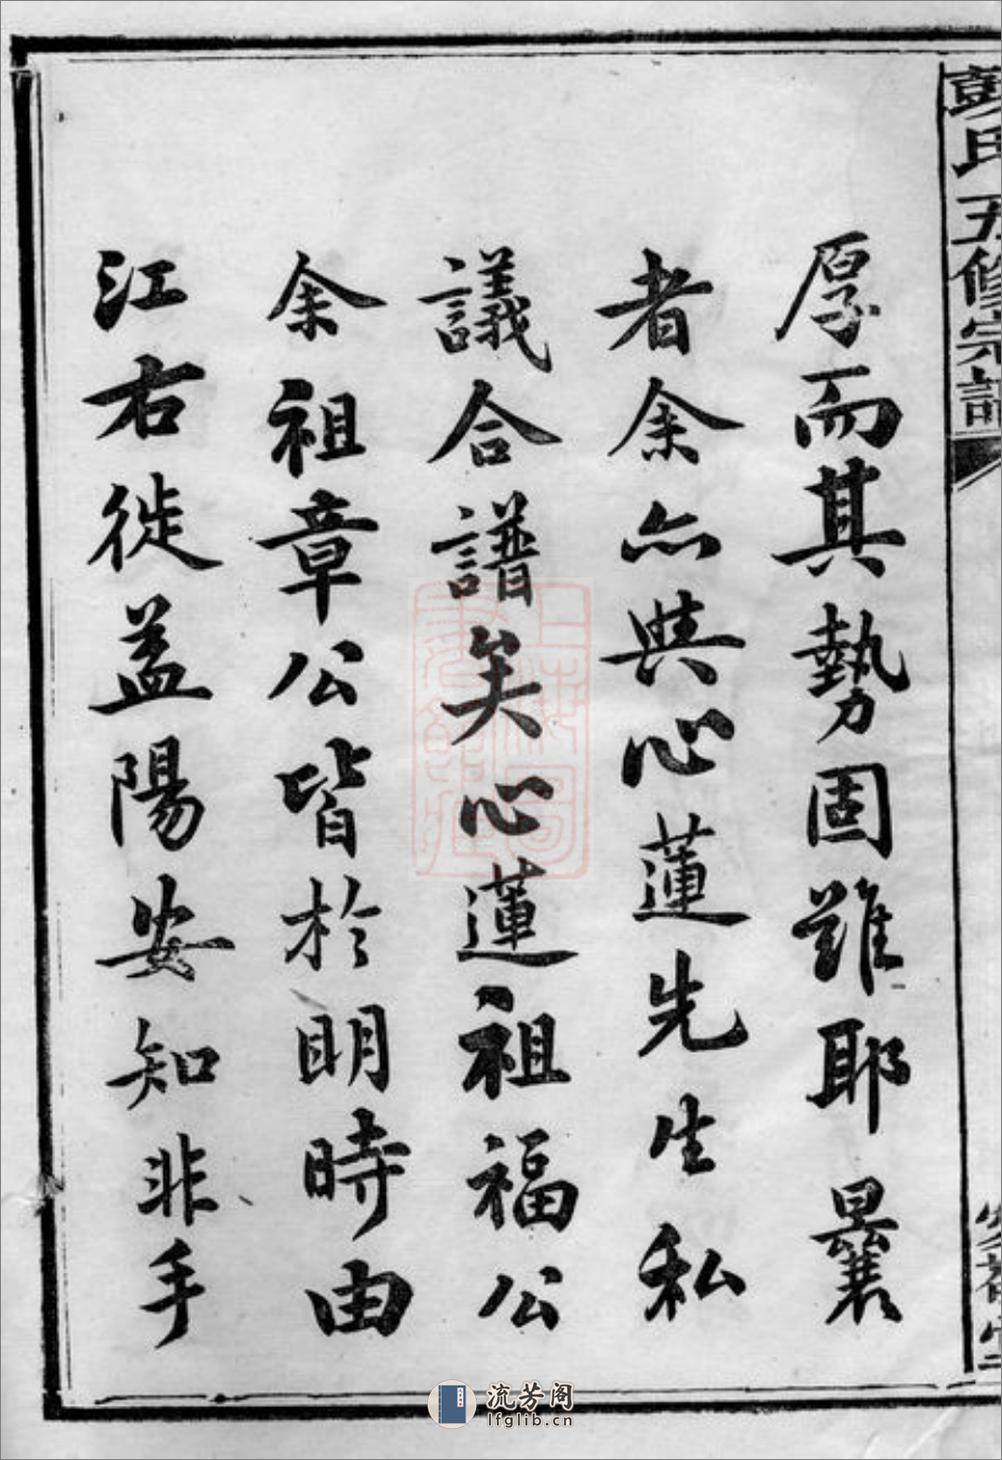 彭氏五修宗譜
厚而其勢固難耶曩
者余亦與心蓮先生私
議合譜矣心蓮祖福公
余祖章公皆於明時由
江右徙益陽安知非手
流芳阁
lfglib.cn